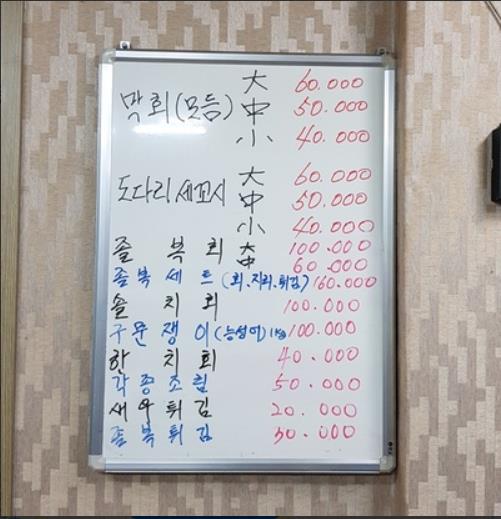 大 60.000
막회(모듬) 中 50.000
小 40.000
大 60.000
도다리세꼬시 中 50.000
小 40.000
졸복회 大 100.000
中 60.000
졸복세트(회.지리.튀김) 160.000
솔치회 100.000
구문쟁이(능성어)1kg 100.000
한치회 40.000
각종조림 50.000
새우튀김 20.000
졸복튀김 30.000